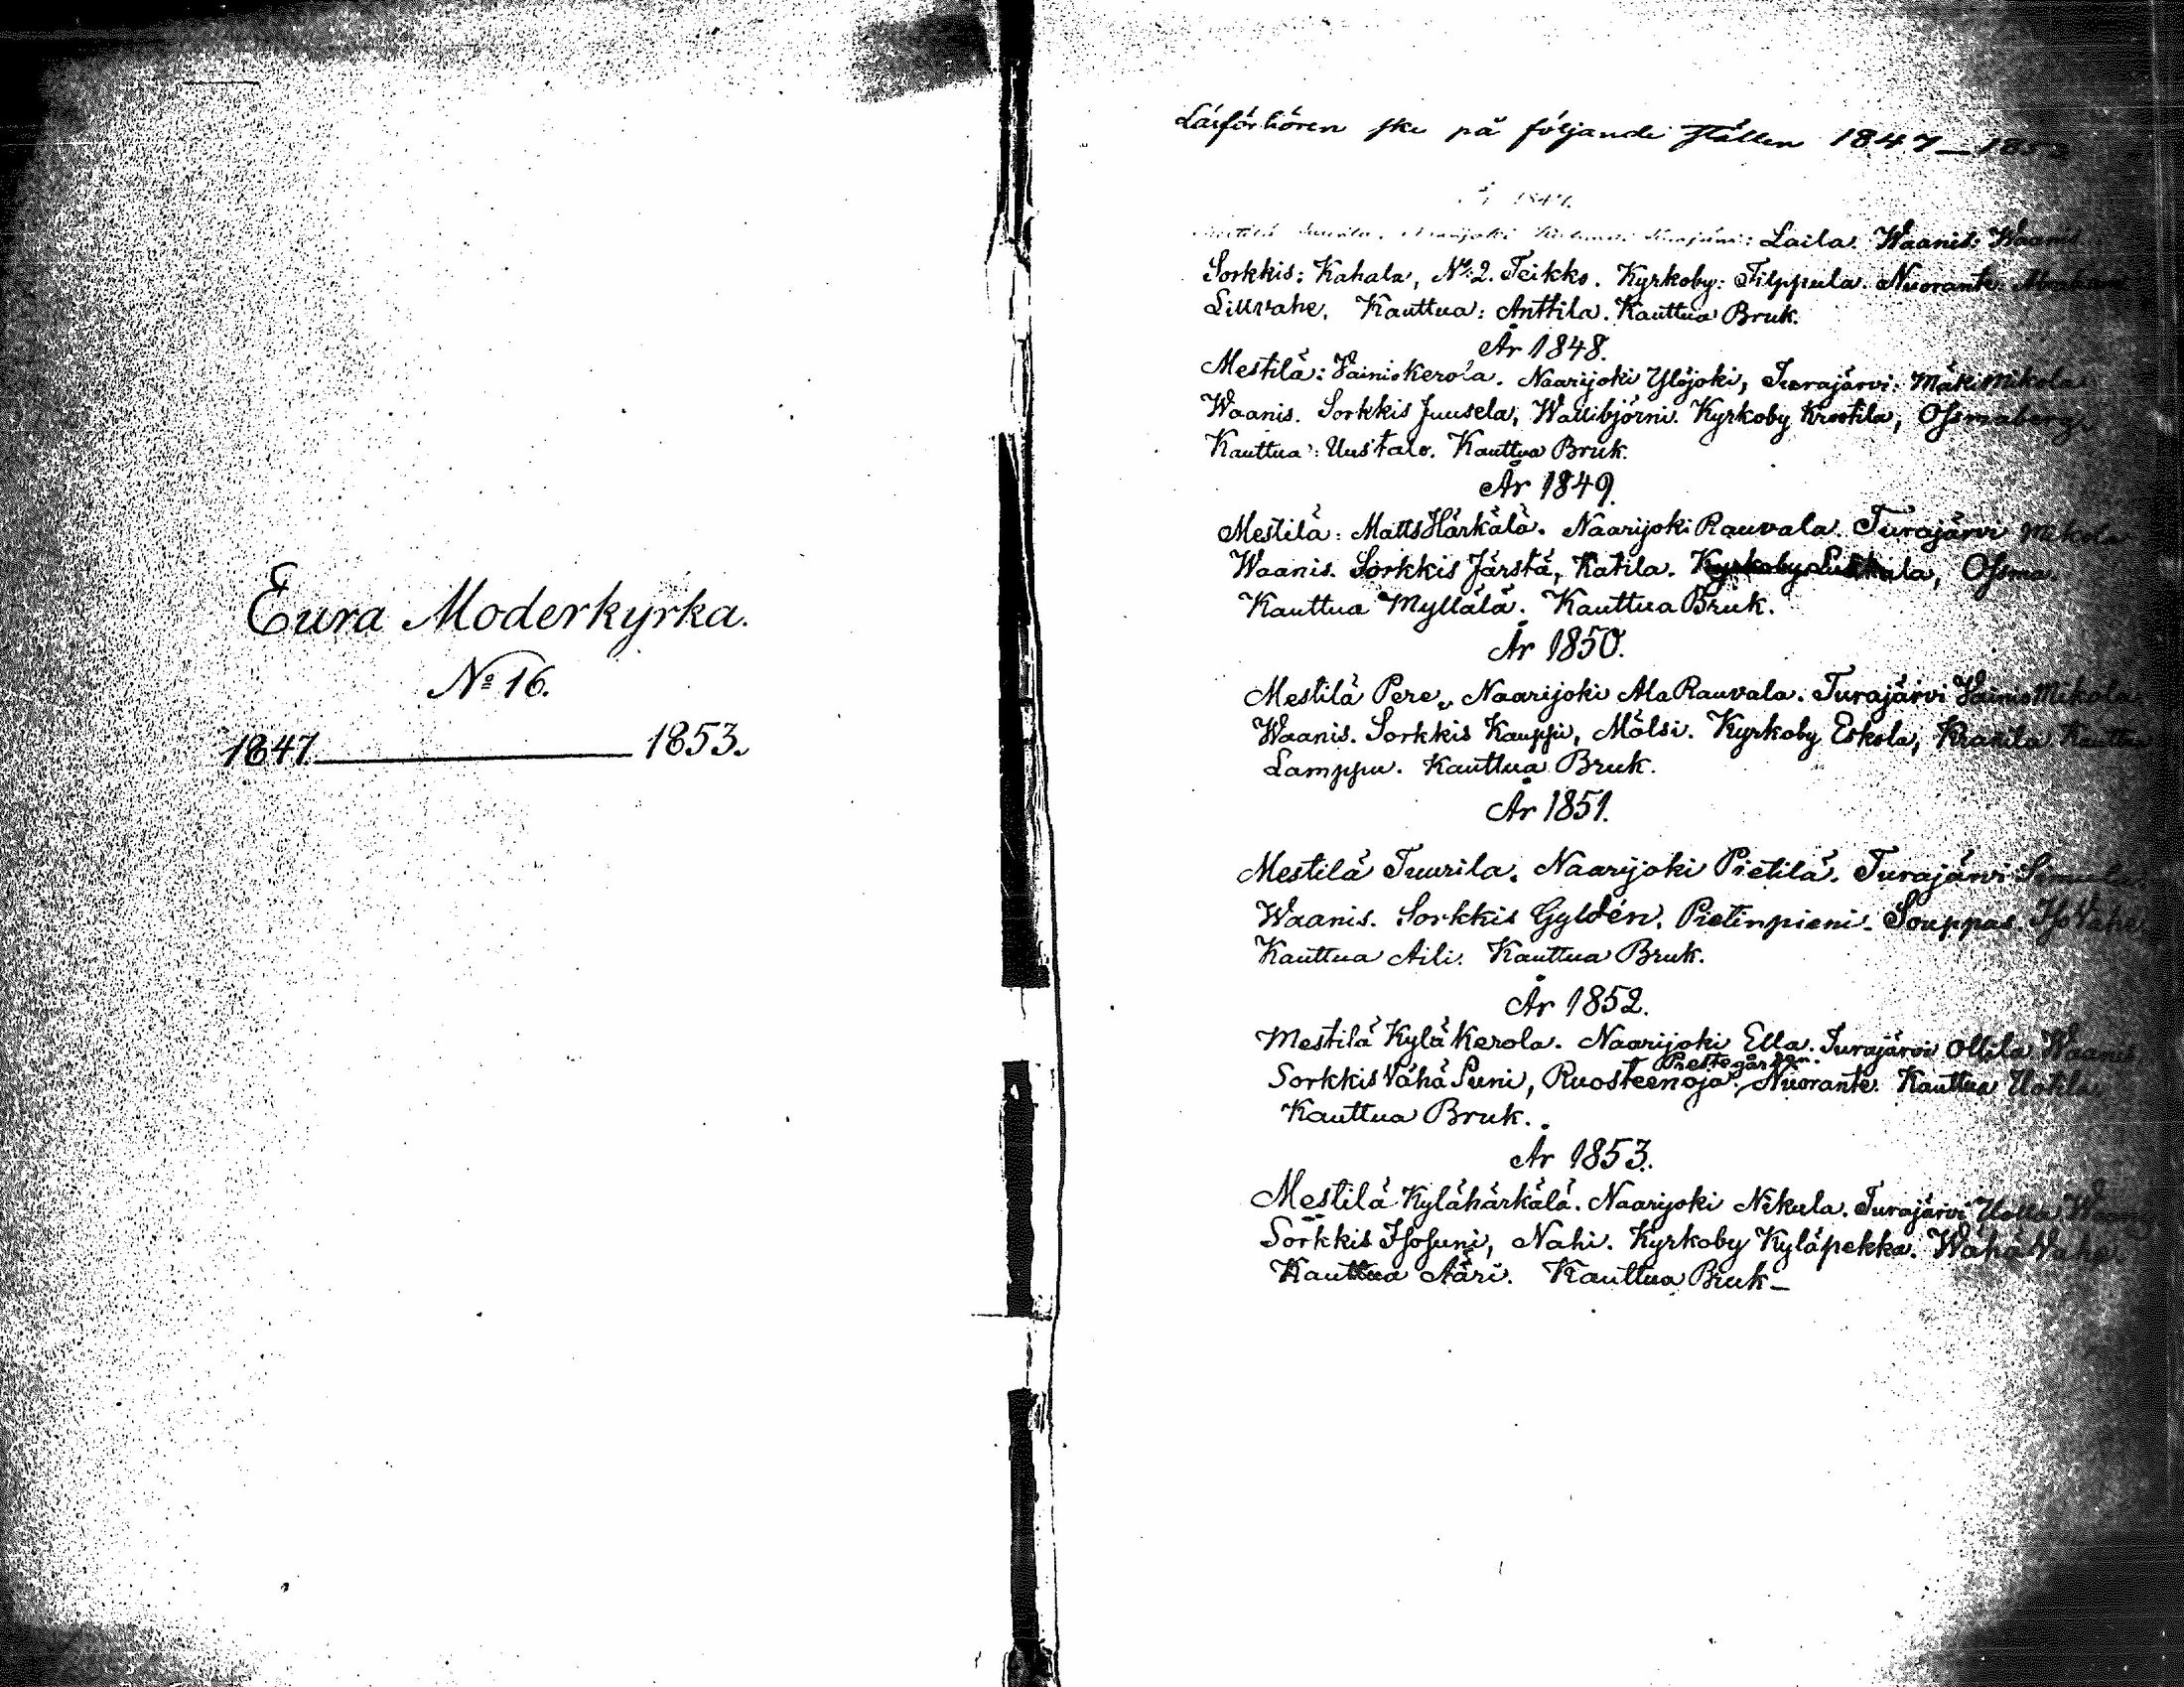 Eura Moderkyrka.
No 16.
1847 — 1853.
Läsförhören ske på följande ställen 1847—1853
År 1847.
Laila. Waanis: Waanis
Sorkkis: Kahala, No: 2. Teikko. Kyrkoby: Filppula. Nuorante
Lillvahe. Kauttua: Anttila. Kauttua Bruk.
År 1848.
Mestilä: Wainiokerola. Naarijoki Ylöjoki, Turajärvi: Mäki Mikola
Waanis. Sorkkis Juusela, Wallibjörni. Kyrkoby Krootila, Ossmaberg,
Kauttua: Uustalo. Kauttua Bruk.
År 1849.
Mestilä: Matts Härkälä. Naarijoki Rauvala. Turajärvi Mikola
Waanis. Sorkkis Järstä, Katila. Kyrkoby Ossma.
Kauttua Myllälä. Kauttua Bruk.
År 1850.
Mestilä Pere, Naarijoki Ala Rauvala. Turajärvi Wainio Mikola.
Waanis. Sorkkis Kauppi, Mölsi. Kyrkoby Eskola, Kraaila Kauttua
Lamppu. Kauttua Bruk.
År 1851.
Mestilä Tuurila. Naarijoki Pietilä. Turajärvi Simula.
Waanis. Sorkkis Gyldén, Pietinpieni. Souppas. Iso Vahe
Kauttua Aili. Kauttua Bruk.
År 1852.
Mestilä Kylä Kerola. Naarijoki Ella. Turajärvi Ollila Waanis
Prestegården.
Sorkkis Vähä Suni, Ruosteenoja, Nuorante. Kauttua Uotila.
Kauttua Bruk.
År 1853.
Mestilä Kylähärkälä. Naarijoki Nikula. Turajärvi Uolla
Sorkkis Isosuni, Nahi. Kyrkoby Kyläpekka. Wähä Vahe.
Kauttua Ääri. Kauttua Bruk—